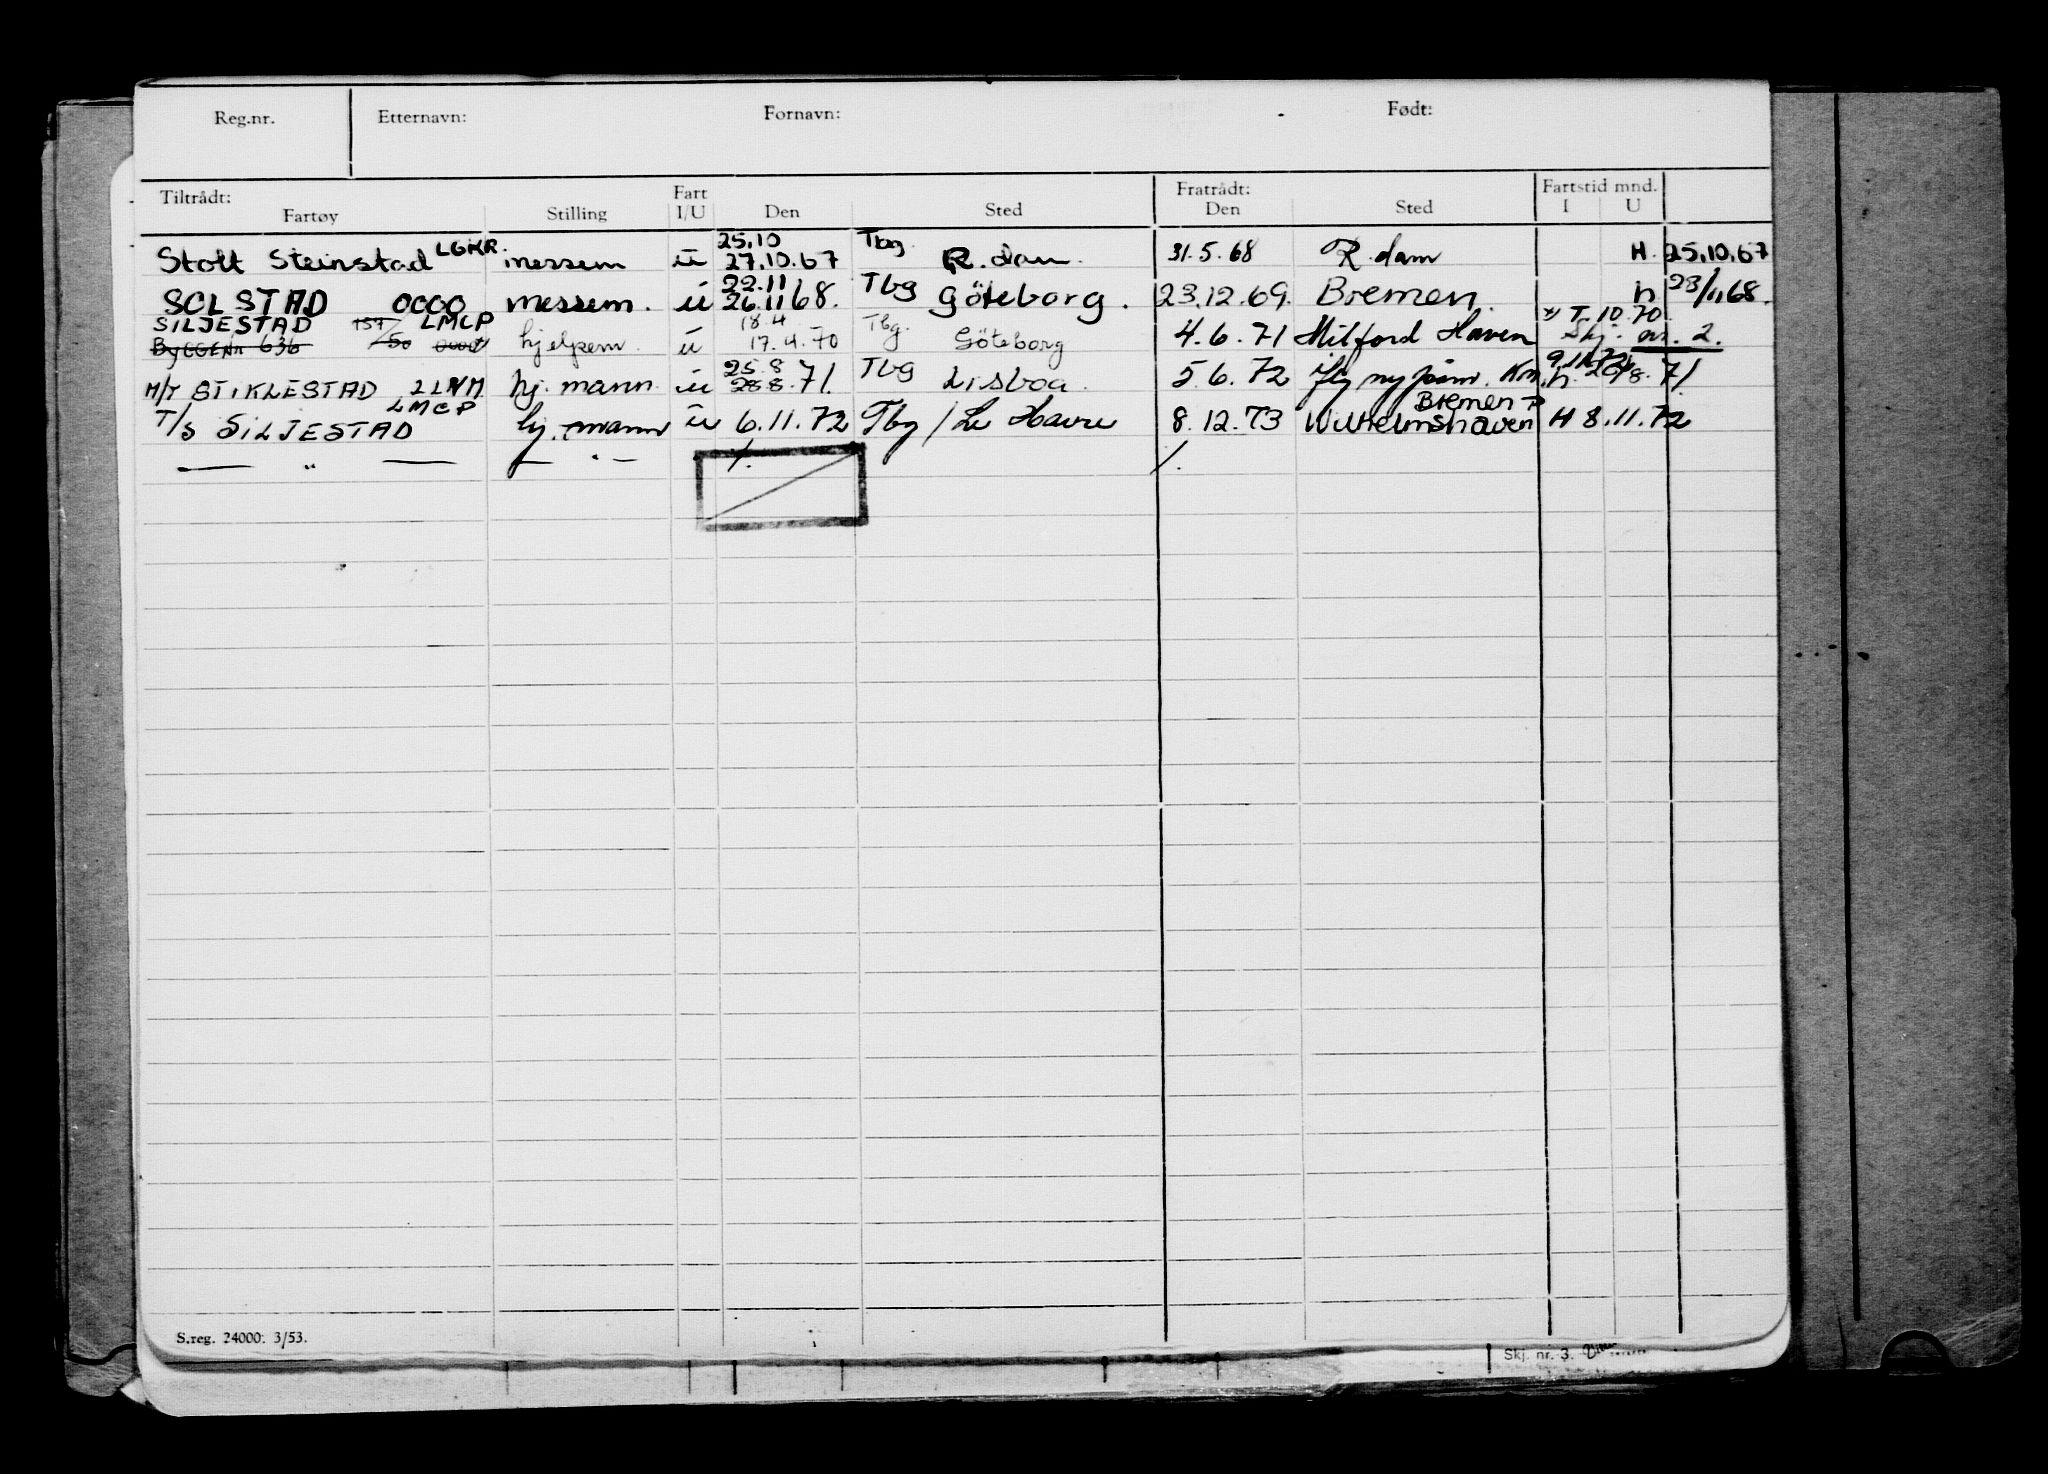 Reg.nr. Etternavn: Fornavn: Født:
Tiltrådt: Fart Fratrådt: Fartstid mnd.
Fartøy Stilling I/U Den Sted Den Sted I U
25.10 Tbg.
Stolt Steinstad LGKR. messem ū 27.10.67 R.dam. 31.5.68 R.dam H. 25.10.67
22.11 Tbg
SOLSTAD 0000 messem. ū 26.11.68. Göteborg. 23.12.69. Bremen. h 23/11.68.
SILJESTAD 157/50 LMCP 18.4 Tbg. T.10.70
BYGGENR 636 0000 hjelpem. ū 17.4.70 Göteborg 4.6.71 Milford Haven Skj. nr. 2.
25.8 Tbg
M/T STIKLESTAD LLNM hj. mann. ū 28.8.71. Lisboa. 5.6.72 flg ny h. 28/8.71.
LMCP Bremen
T/S SILJESTAD hj. mann ū 6.11.72 Tbg / Le Havre 8.12.73 Wilhelmshaven H 8.11.72
— " — — " — /. /.
S.reg. 24000. 3/53.
Skj. nr. 3.